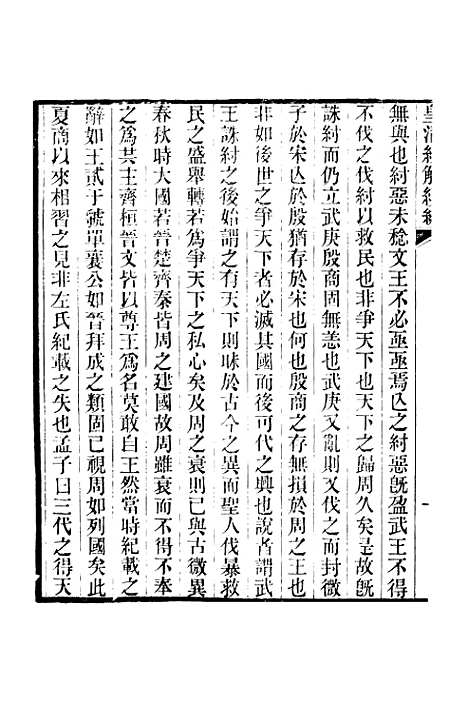 皇清經解續編
無與也紂惡未稔文王不必亟亟焉亾之紂惡旣盈武王不得
不伐之伐紂以救民也非爭天下也天下之歸周久矣是故旣
誅紂而仍立武庚殷商固無恙也武庚又亂則又伐之而封微
子於宋亾於殷猶存於宋也何也殷商之存無損於周之王也
非如後世之爭天下者必滅其國而後可代之興也說者謂武
王誅紂之後始謂之有天下則昧於古今之異而聖人伐暴救
民之盛舉轉若爲爭天下之私心矣及周之衰則已與古微異
春秋時大國若晉楚齊秦皆周之建國故周雖衰而不得不奉
之爲共主齊桓晉文皆以尊王爲名莫敢自王然當時紀載之
辭如王貳于虢單襄公如晉拜成之類固已視周如列國矣此
夏商以來相習之見非左氏紀載之失也孟子曰三代之得天